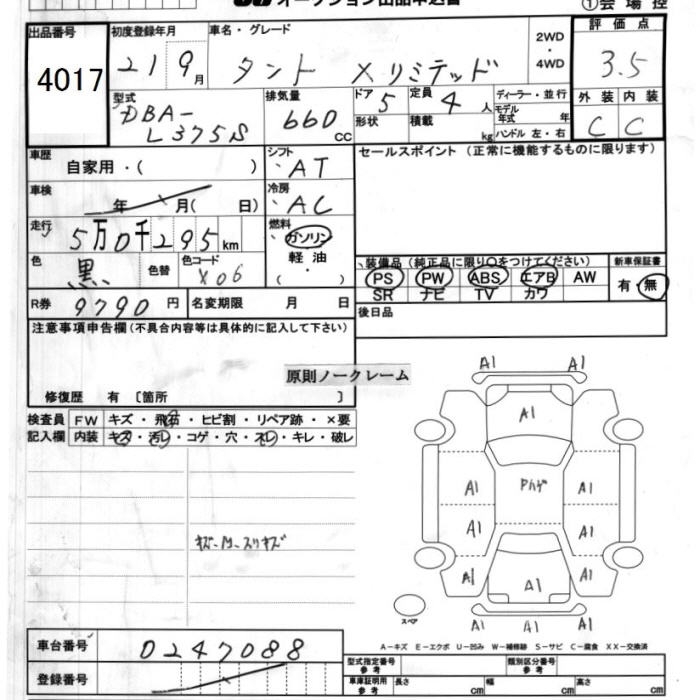 オークション出品申込書
①会場控
出品番号 初度登録年月 車名・グレード 2WD ・ 4WD 評価点
4017 21 9月 タント Xリミテッド 3.5
型式 DBA-L375S 排気量 660 cc ドア 5 定員 4人 ディーラー・並行 外装 内装
形状 積載 kg モデル年式 年 ハンドル 左・右 C C
車歴 自家用・( ) シフト AT セールスポイント (正常に機能するものに限ります)
車検 年 月( 日) 冷房 AC
走行 5万0千295km 燃料 ガソリン
色 黒 色替 色コード X06 軽油 ( )
装備品 (純正品に限り○をつけてください) 新車保証書
PS PW ABS エアB AW 有・無
SR ナビ TV カワ
R券 9790円 名変期限 月 日 後日品
注意事項申告欄 (不具合内容等は具体的に記入して下さい)
原則ノークレーム
修復歴 有 〔箇所 〕
検査員 FW キズ・飛石・ヒビ割・リペア跡・×要
記入欄 内装 キズ・汚レ・コゲ・穴・スレ・キレ・破レ
A1 A1
A1
A1 Pハゲ A1
キズ
A1 A1
A1 A1 A1
スペア
A1 A1 A1
A-キズ E-エクボ U-凹み W-補修跡 S-サビ C-腐食 XX-交換済
車台番号 0247088
登録番号
型式指定番号 参考 類別区分番号 参考
車庫証明用 参考 長さ cm 幅 cm 高さ cm